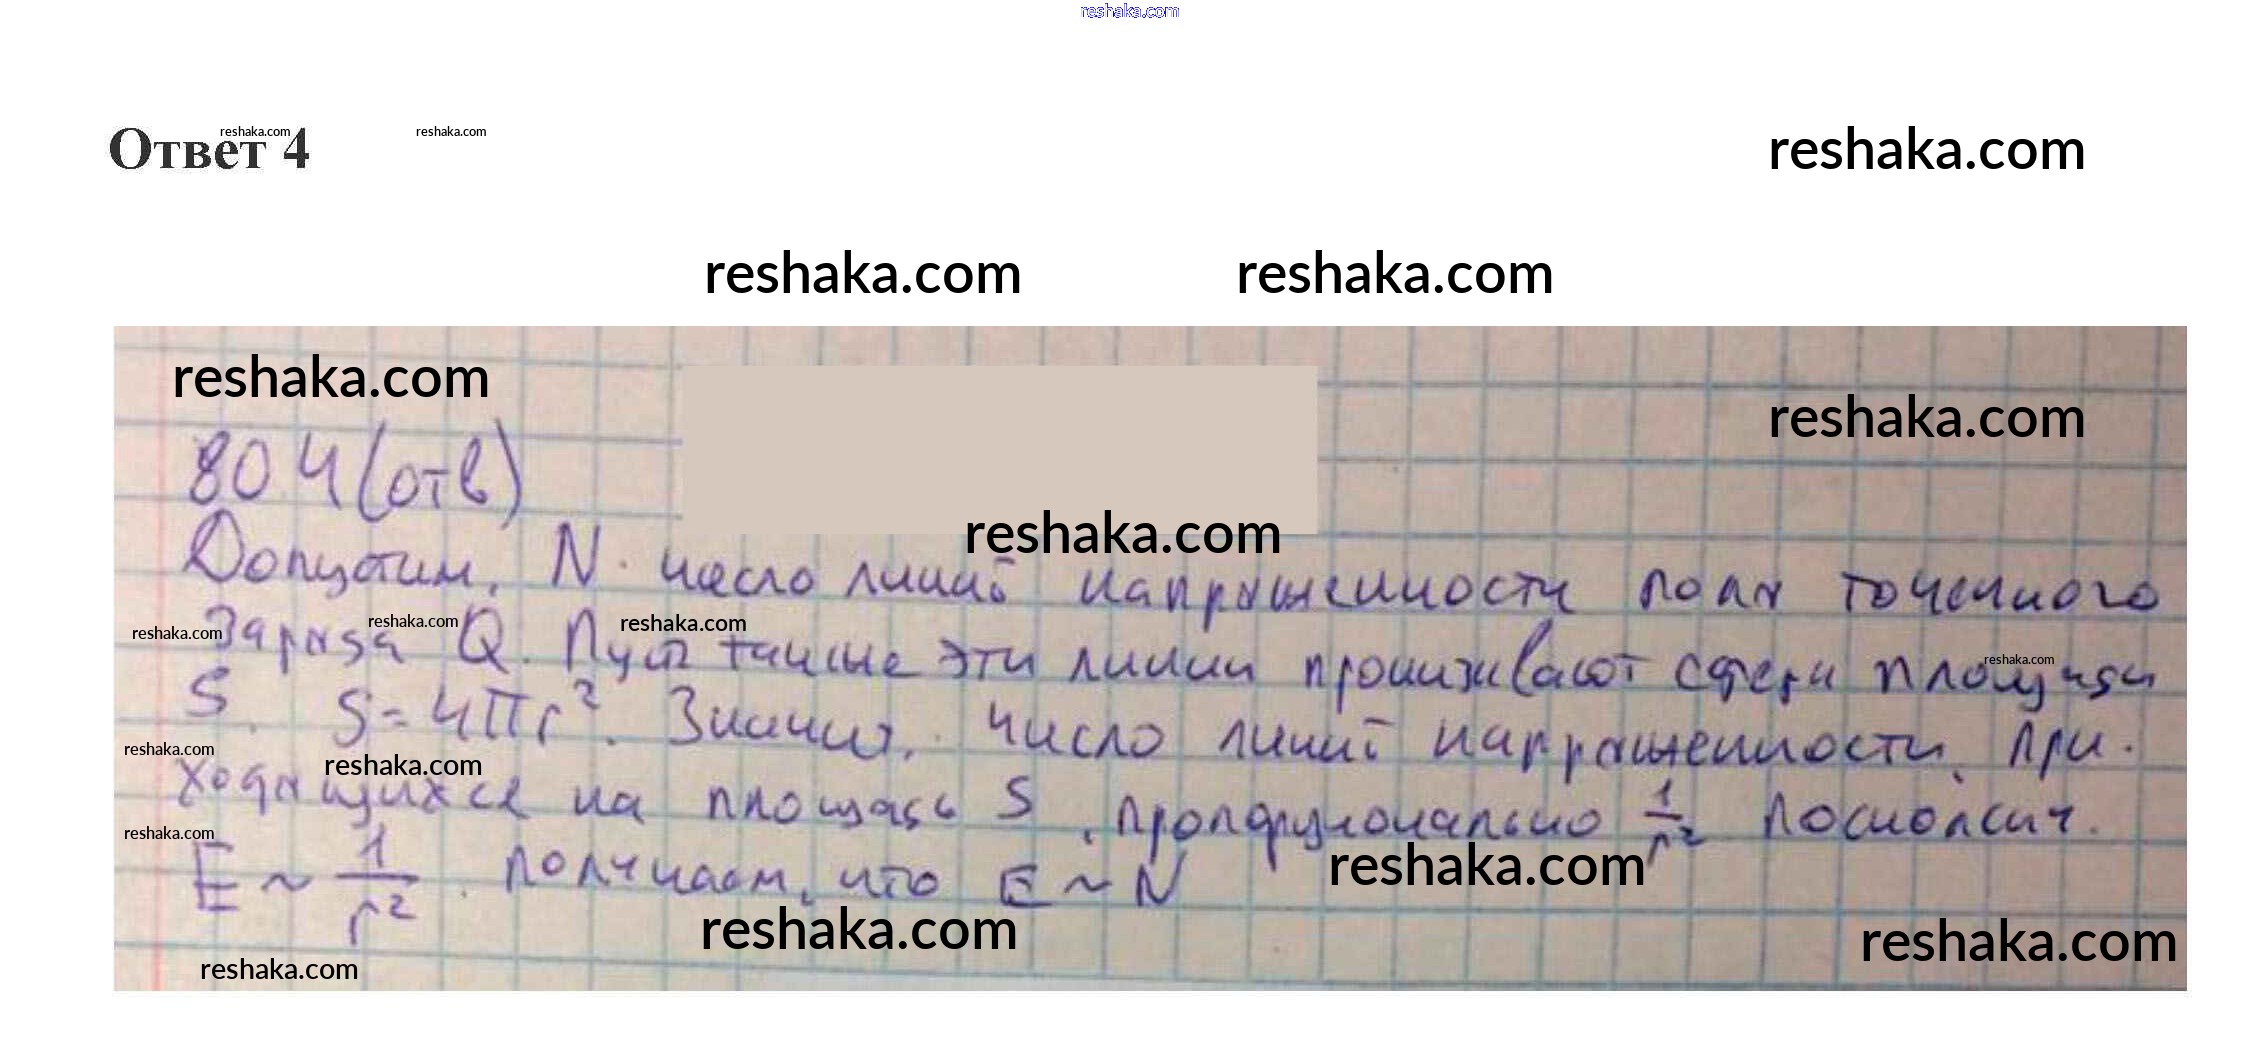 reshaka.com
Ответ 4
reshaka.com
reshaka.com
reshaka.com
reshaka.com
reshaka.com
reshaka.com
reshaka.com
804 (отв)
reshaka.com
Допустим, N число линий напряженности поля точечного
reshaka.com
reshaka.com
reshaka.com
заряда Q. Пусть эти линии пронизывают сферу площади
reshaka.com
S. S = 4πr². Значит, число линий напряженности, при-
reshaka.com
reshaka.com
ходящихся на площадь S, пропорционально 1/r²
reshaka.com
reshaka.com
E ~ 1/r². получаем, что E ~ N
reshaka.com
reshaka.com
reshaka.com